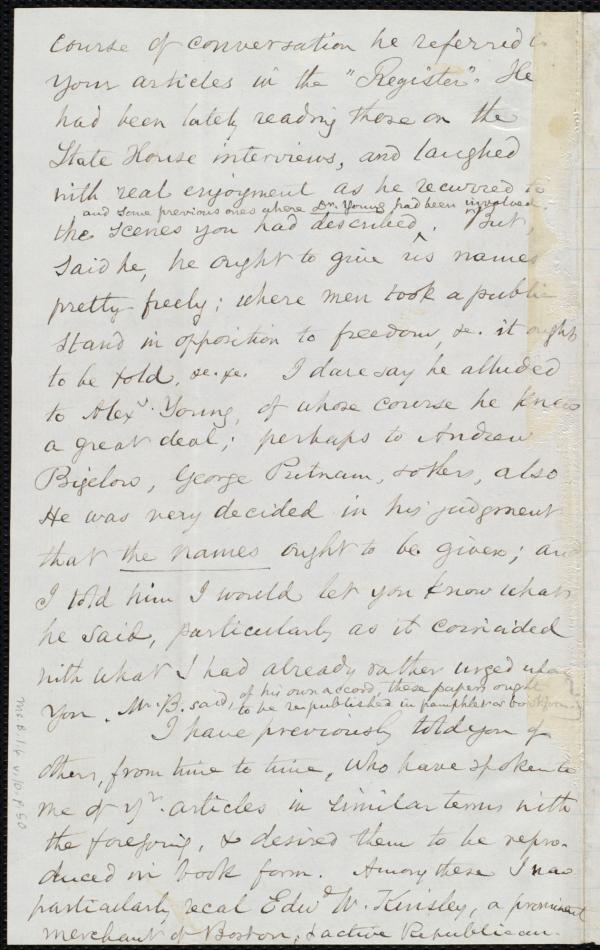 course of conversation he referred to
your articles in the "Register". He
had been lately reading those on the
State House interviews, and laughed
with real enjoyment as he recurred to
and some previous ones where Dr. Young had been involved.
the scenes you had described. But,
said he, he ought to give us names
pretty freely; where men took a public
stand in opposition to freedom, &c. it ought
to be told, &c. &c. I dare say he alluded
to Alexr. Young, of whose course he knew
a great deal; perhaps to Andrew
Bigelow, George Putnam, & others, also
He was very decided in his judgment
that the names ought to be given; and
I told him I would let you know what
he said, particularly as it coincided
with what I had already rather urged upon
of his own accord, these papers ought
You. Mr. B. said, to be republished in pamphlet or book form.
I have previously told you of
others, from time to time, who have spoken to
me of yr. articles in similar terms with
the foregoing, & desired them to be repro-
duced in book form. Among these I now
particularly recal Edwd. W. Kinsley, a prominent
merchant of Boston, & active Republican.
Ms.B.1.6 v.10, p.50